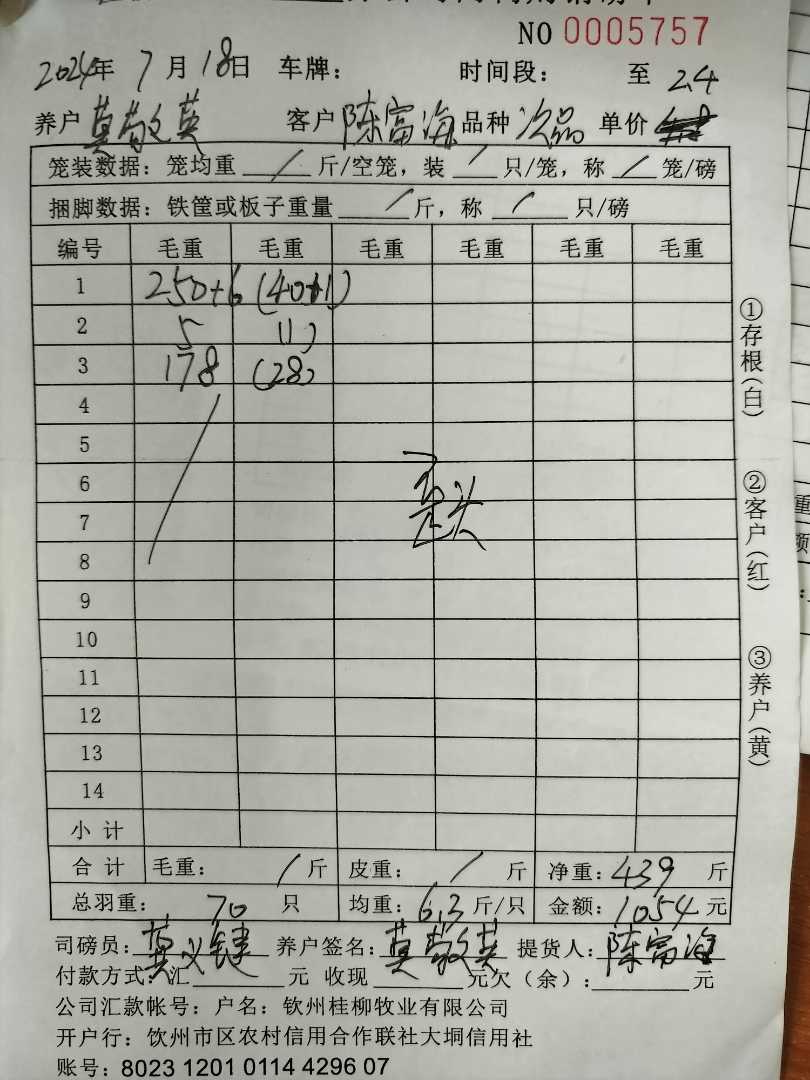 NO 0005757
2024年 7 月 18日 车牌： 时间段： 至 2.4
养户 莫敬英 客户 陈富海 品种 次品 单价
笼装数据：笼均重 / 斤/空笼，装 / 只/笼，称 / 笼/磅
捆脚数据：铁筐或板子重量 / 斤，称 / 只/磅
编号 毛重 毛重 毛重 毛重 毛重 毛重
1 250+6 (40+1)
2 5 (1)
3 178 (28)
4
5
6
7
8
歪头
9
10
11
12
13
14
小计
合计 毛重： / 斤 皮重： / 斤 净重：439 斤
总羽重： 70 只 均重：6.3 斤/只 金额：1054 元
司磅员：莫义键 养户签名：莫敬英 提货人：陈富海
付款方式：汇 元 收现 元欠（余）： 元
公司汇款帐号：户名：钦州桂柳牧业有限公司
开户行：钦州市区农村信用合作联社大垌信用社
账号：8023 1201 0114 4296 07
①存根（白）
②客户（红）
③养户（黄）